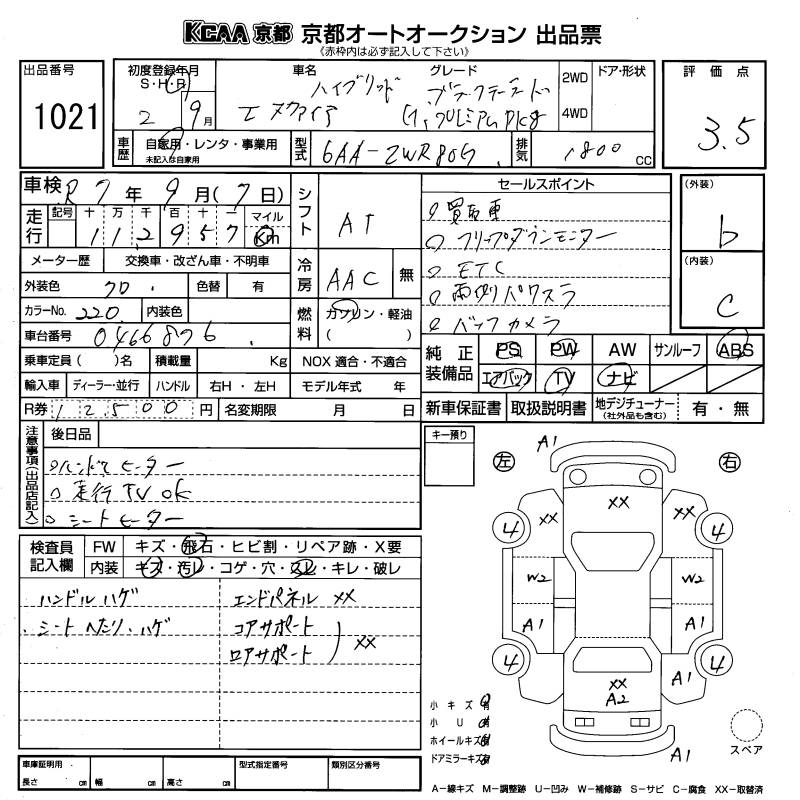 KCAA 京都 京都オートオークション 出品票
《赤枠内は必ず記入して下さい》
出品番号
1021
初度登録年月
S・H・R
2 9月
車名
ハイブリッド
エスクァイア
グレード
Gi プレミアムPkg
2WD
4WD
ドア・形状
評価点
3.5
車歴
自家用・レンタ・事業用
未記入は自家用
型式
6AA-ZWR80G
排気
1800 CC
車検 R7年9月(7日)
走行
記号 十 万 千 百 十 一 マイル
112957 Km
メーター歴 交換車・改ざん車・不明車
外装色 クロ 色替 有
カラーNo. 220 内装色
車台番号 0466876
乗車定員 ( )名 積載量 Kg
輸入車 ディーラー・並行 ハンドル 右H・左H
R券 12500円 名変期限 月 日
シフト AT
冷房 AAC 無
燃料 ガソリン・軽油
( )
NOX 適合・不適合
モデル年式 年
セールスポイント
フリップダウンモニター
ETC
両側パワスラ
バックカメラ
(外装)
b
(内装)
C
純正装備品
PS PW AW サンルーフ ABS
エアバック TV ナビ
新車保証書 取扱説明書 地デジチューナー 有・無
(社外品も含む)
注意事項(出品店記入)
後日品
ハンドルヒーター
走行TV OK
シートヒーター
検査員記入欄
FW キズ・飛石・ヒビ割・リペア跡・X要
内装 キズ・汚レ・コゲ・穴・スレ・キレ・破レ
ハンドル ハゲ
シート ヘタリ・ハゲ
エンドパネル XX
コアサポート
ロアサポート
XX
キー預り
左 右
A1
XX
XX XX
4 4
W2 W2
A1 A1
4 4
XX
A2
A1
A1
小キズ 有
小U 有
ホイールキズ 有
ドアミラーキズ 有
スペア
車庫証明用
長さ cm 幅 cm 高さ cm
型式指定番号
類別区分番号
A-線キズ M-調整跡 U-凹み W-補修跡 S-サビ C-腐食 XX-取替済